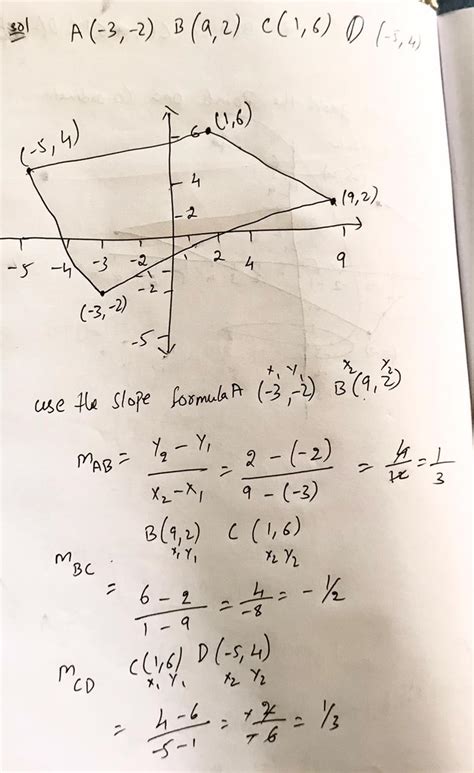 sol A(-3,-2) B(9,2) C(1,6) D(-5,4)
(-5,4) 6 (1,6)
4
2 (9,2)
-5 -4 -3 -2 -1 1 2 4 9
(-3,-2) -2
-5
use the slope formula A (-3,-2) B(9,2)
x₁ y₁ x₂ y₂
m_AB = (y₂ - y₁)/(x₂ - x₁) = (2-(-2))/(9-(-3)) = 4/12 = 1/3
B(9,2) C(1,6)
x₁ y₁ x₂ y₂
m_BC
= (6-2)/(1-9) = 4/-8 = -1/2
m_CD C(1,6) D(-5,4)
x₁ y₁ x₂ y₂
= (4-6)/(-5-1) = +2/+6 = 1/3